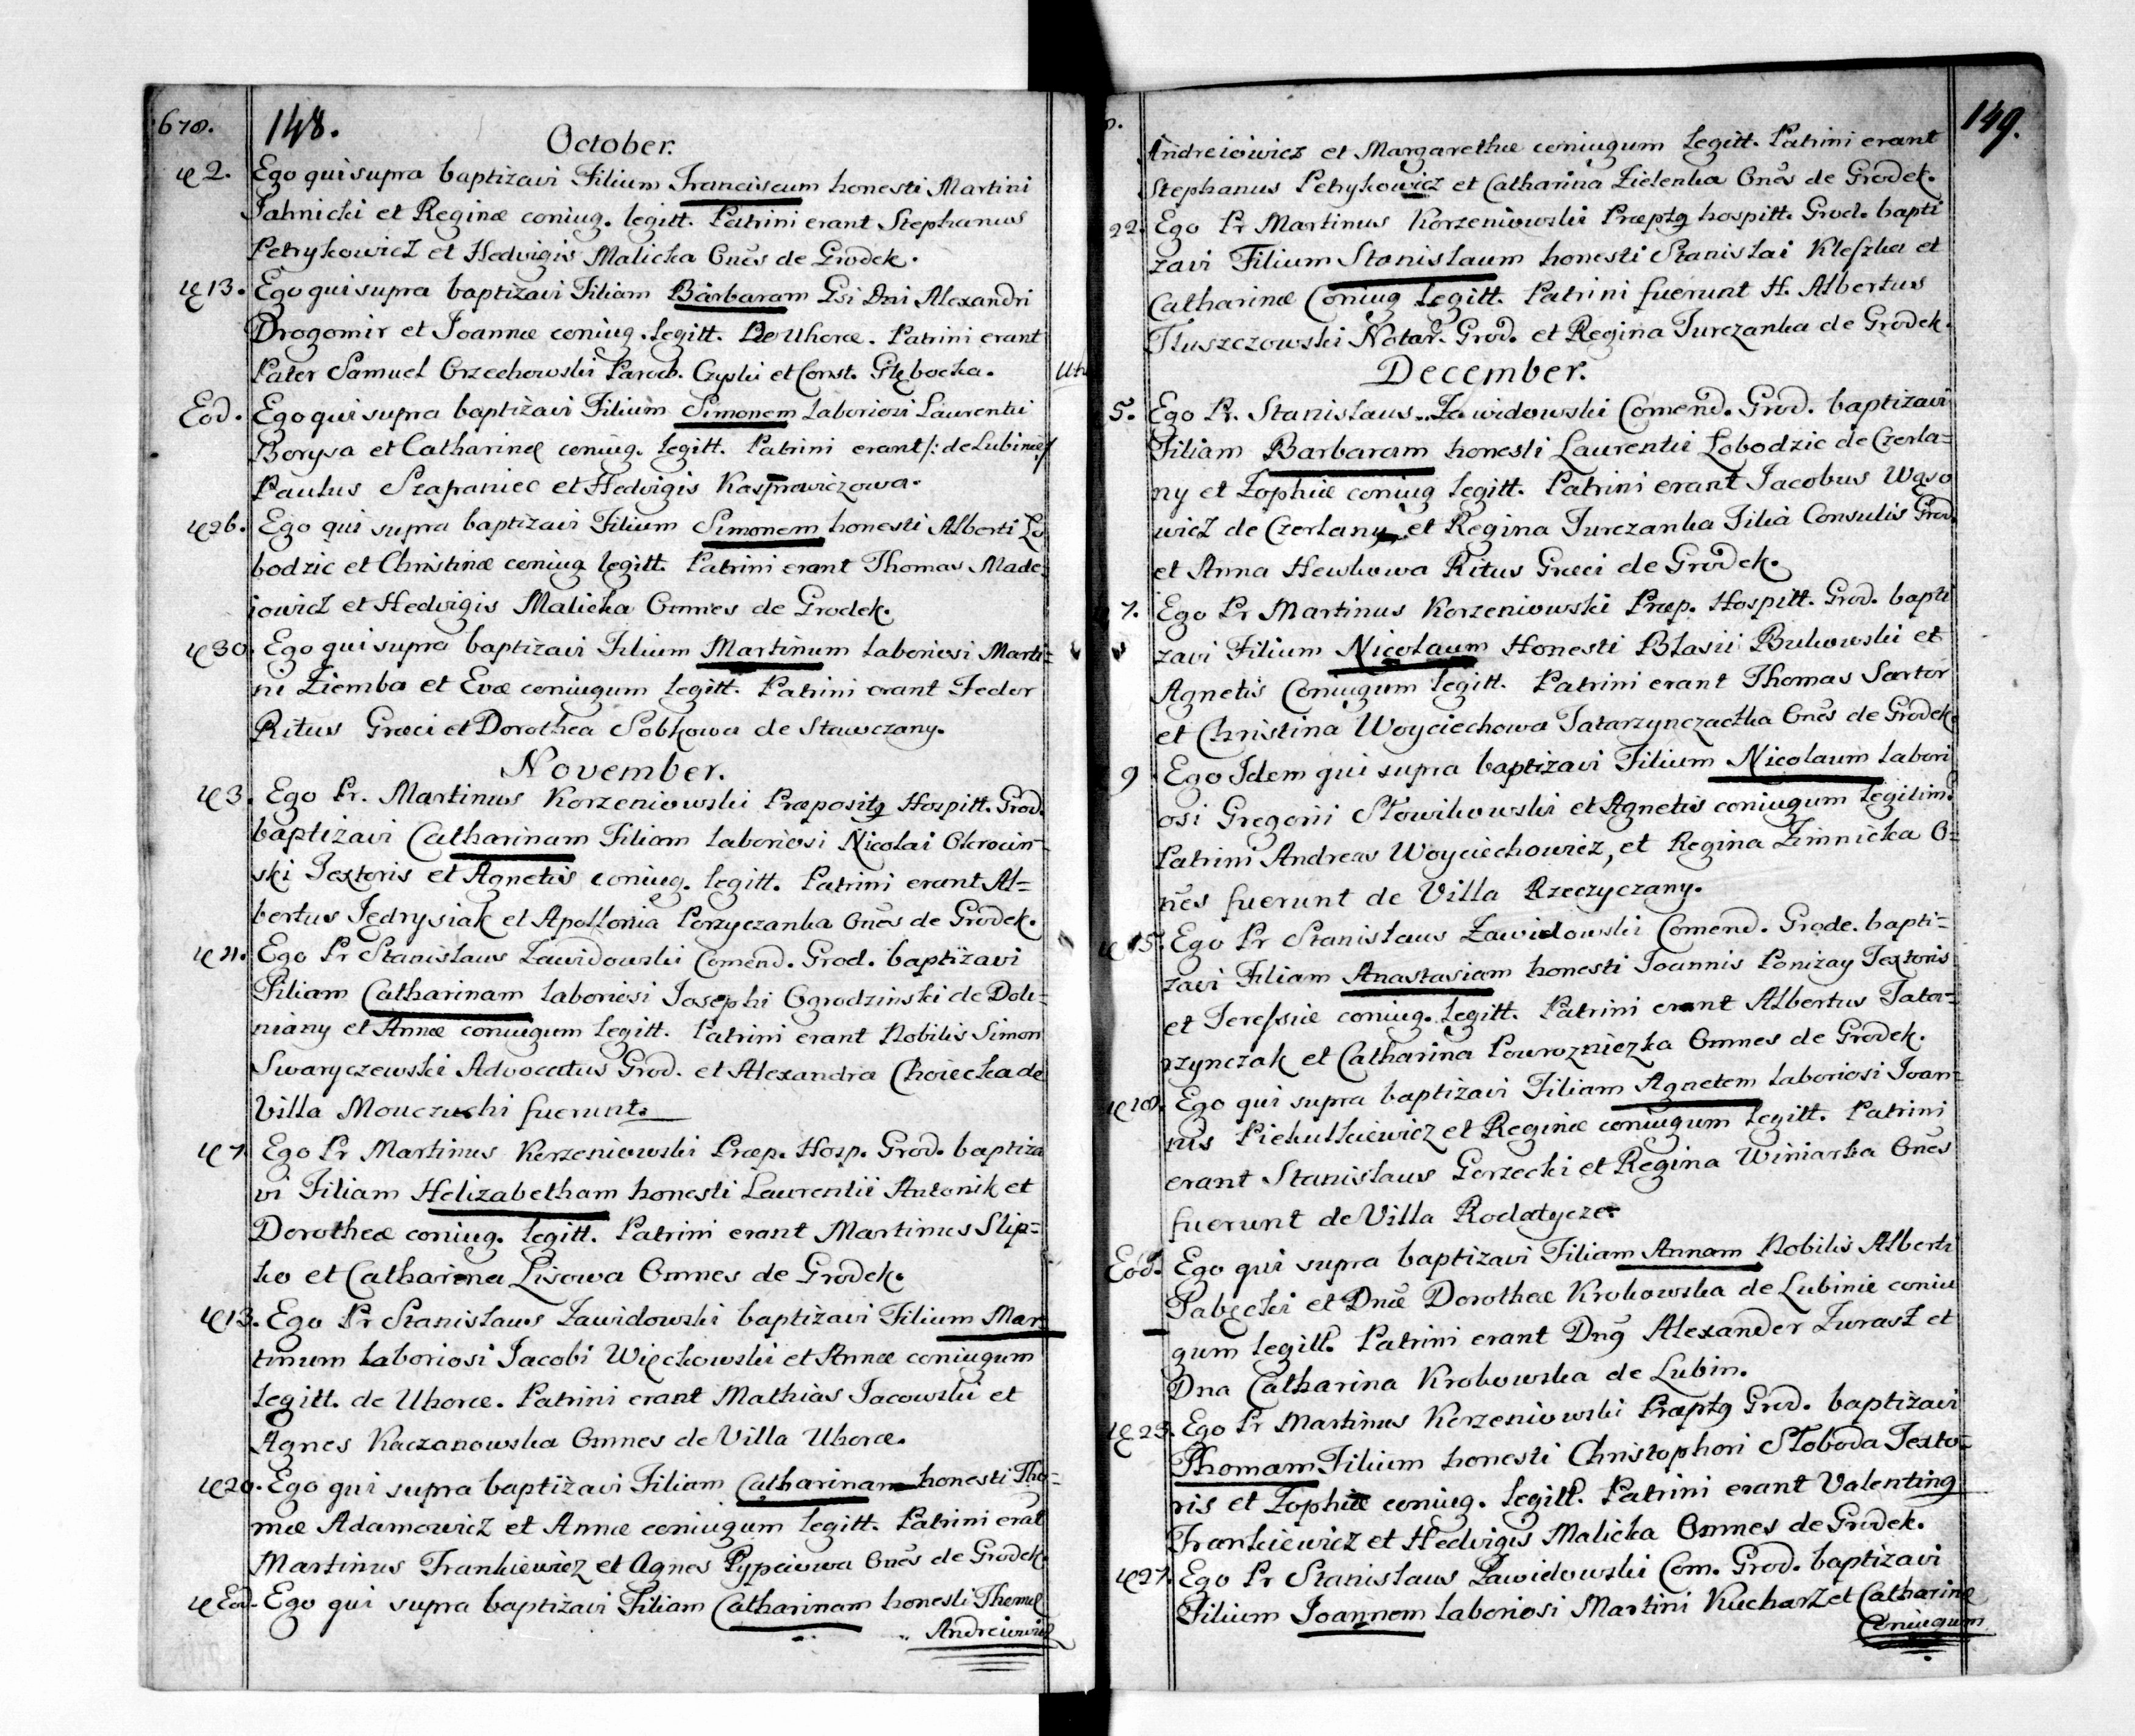 678.
148.
October.
2. Ego qui supra baptizavi Filium Franciscum honesti Martini
Jahnicki et Reginæ coniug. legitt. Patrini erant Stephanus
Petrykowicz et Hedvigis Malicka Onēs de Grodek.
13. Ego qui supra baptizavi Filiam Barbaram Gsi Dni Alexandri
Drogomir et Joannæ coniug. legitt. De Uhorce. Patrini erant
Pater Samuel Orzechowski Paroch. Czyski et Const. Głębocka.
Eod. Ego qui supra baptizavi Filium Simonem Laboriosi Laurentii
Borysa et Catharinæ coniug. legitt. Patrini erant /: de Lubinie/
Paulus Szapaniec et Hedvigis Kasprowiczowa.
26. Ego qui supra baptizavi Filium Simonem honesti Alberti Lo
bodzic et Christinæ coniug legitt. Patrini erant Thomas Made-
iowicz et Hedvigis Malicka Omnes de Grodek.
30. Ego qui supra baptizavi Filium Martinum Laboriosi Marti-
ni Ziemba et Evæ coniugum legitt. Patrini erant Fedor
Ritus Græci et Dorothea Sobkowa de Stawczany.
November.
3. Ego Pr. Martinus Korzeniowski Præpositq Hospitt. Grod.
baptizavi Catharinam Filiam Laboriosi Nicolai Okrocin-
ski Textoris et Agnetis coniug. legitt. Patrini erant Al=
bertus Jędrysiak et Apollonia Porzyczanka Onēs de Grodek.
4. Ego Pr Stanislaus Zawidowski Comend. Grod. baptizavi
Filiam Catharinam Laboriosi Josephi Ogrodzinski de Doli-
niany et Annæ coniugum legitt. Patrini erant Nobilis Simon
Swaryczewski Advocatus Grod. et Alexandra Choiecka de
Villa Mouczuchi fuerunt.
7. Ego Pr Martinus Korzeniowski Præp. Hosp. Grod. baptiza
vi Filiam Helizabetham honesti Laurentii Antonik et
Dorotheæ coniug. legitt. Patrini erant Martinus Slip=
ko et Catharina Lisowa Omnes de Grodek.
13. Ego Pr Stanislaus Zawidowski baptizavi Filium Mar
tinum Laboriosi Jacobi Więckowski et Annæ coniugum
legitt. de Uhorce. Patrini erant Mathias Jacowski et
Agnes Kaczanowska Omnes de Villa Uhorce.
20. Ego qui supra baptizavi Filiam Catharinam honesti Tho=
mæ Adamowicz et Annæ coniugum legitt. Patrini erāt
Martinus Frankiewicz et Agnes Pypciowa Onēs de Grodek.
Eod. Ego qui supra baptizavi Filiam Catharinam honesti Thomæ
Andreiowicz
149.
Andreiowicz et Margarethæ coniugum legitt. Patrini erant
Stephanus Petrykowicz et Catharina Zielenka Onēs de Grodek.
22. Ego Pr Martinus Korzeniowski Præptq hospitt. Grod. bapti
zavi Filium Stanislaum honesti Stanislai Kleszka et
Catharinæ Coniug legitt. Patrini fuerunt H. Albertus
Tłuszczowski Notar. Grod. et Regina Jurczanka de Grodek.
December.
5. Ego Pr. Stanislaus Zawidowski Comend. Grod. baptizavi
Filiam Barbaram honesti Laurentii Lobodzic de Czerla=
ny et Zophiæ coniug legitt. Patrini erant Jacobus Wąso
wicz de Czerlany et Regina Jurczanka Filia Consulis Grod.
et Anna Hewkowa Ritus Græci de Grodek.
7. Ego Pr Martinus Korzeniowski Præp. Hospitt. Grod. bapti
zavi Filium Nicolaum Honesti Blasii Bukowski et
Agnetis Coniugum legitt. Patrini erant Thomas Sartor
et Christina Woyciechowa Tatarzynczacka Onēs de Grodek.
9 Ego Idem qui supra baptizavi Filium Nicolaum Labori
osi Gregorii Słowikowski et Agnetis coniugum legitim.
Patrini Andreas Woyciechowicz, et Regina Zimnicka O=
nēs fuerunt de Villa Rzeczyczany.
15. Ego Pr Stanislaus Zawidowski Comend. Grode. bapti=
zavi Filiam Anastasiam honesti Joannis Ponizay Textoris
et Teressiæ coniug. legitt. Patrini erant Albertus Tata=
rzynczak et Catharina Powrozniczka Omnes de Grodek.
18. Ego qui supra baptizavi Filiam Agnetem Laboriosi Joan=
nis Piekulkiewicz et Reginæ coniugum legitt. Patrini
erant Stanislaus Gorzecki et Regina Winiarka Onēs
fuerunt de Villa Rodatycze.
Eod. Ego qui supra baptizavi Filiam Annam Nobilis Alberti
Pabęcki et Dnæ Dorotheæ Krokowska de Lubinie coniu
gum legitt. Patrini erant Dnq Alexander Zurasz et
Dna Catharina Krokowska de Lubin.
23. Ego Pr Martinus Korzeniowski Præptq Grod. baptizavi
Thomam Filium honesti Christophori Słoboda Texto=
ris et Zophiæ coniug. legitt. Patrini erant Valentinq
Frankiewicz et Hedvigis Malicka Omnes de Grodek.
27. Ego Pr Stanislaus Zawidowski Com. Grod. baptizavi
Filium Joannem Laboriosi Martini Kucharz et Catharinæ
Coniugum